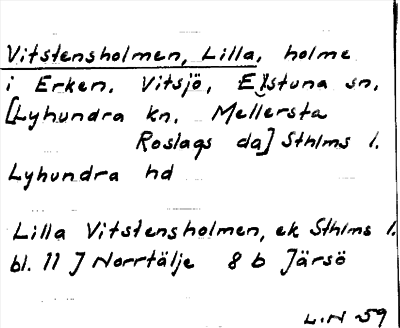 Vitstensholmen, Lilla, holme
i Erken. Vitsjö, Estuna sn,
[Lyhundra kn. Mellersta
Roslags da] Sthlms l.
Lyhundra hd
Lilla Vitstensholmen, ek Sthlms l.
bl. 11 J Norrtälje 8 b Järsö
L.N -59